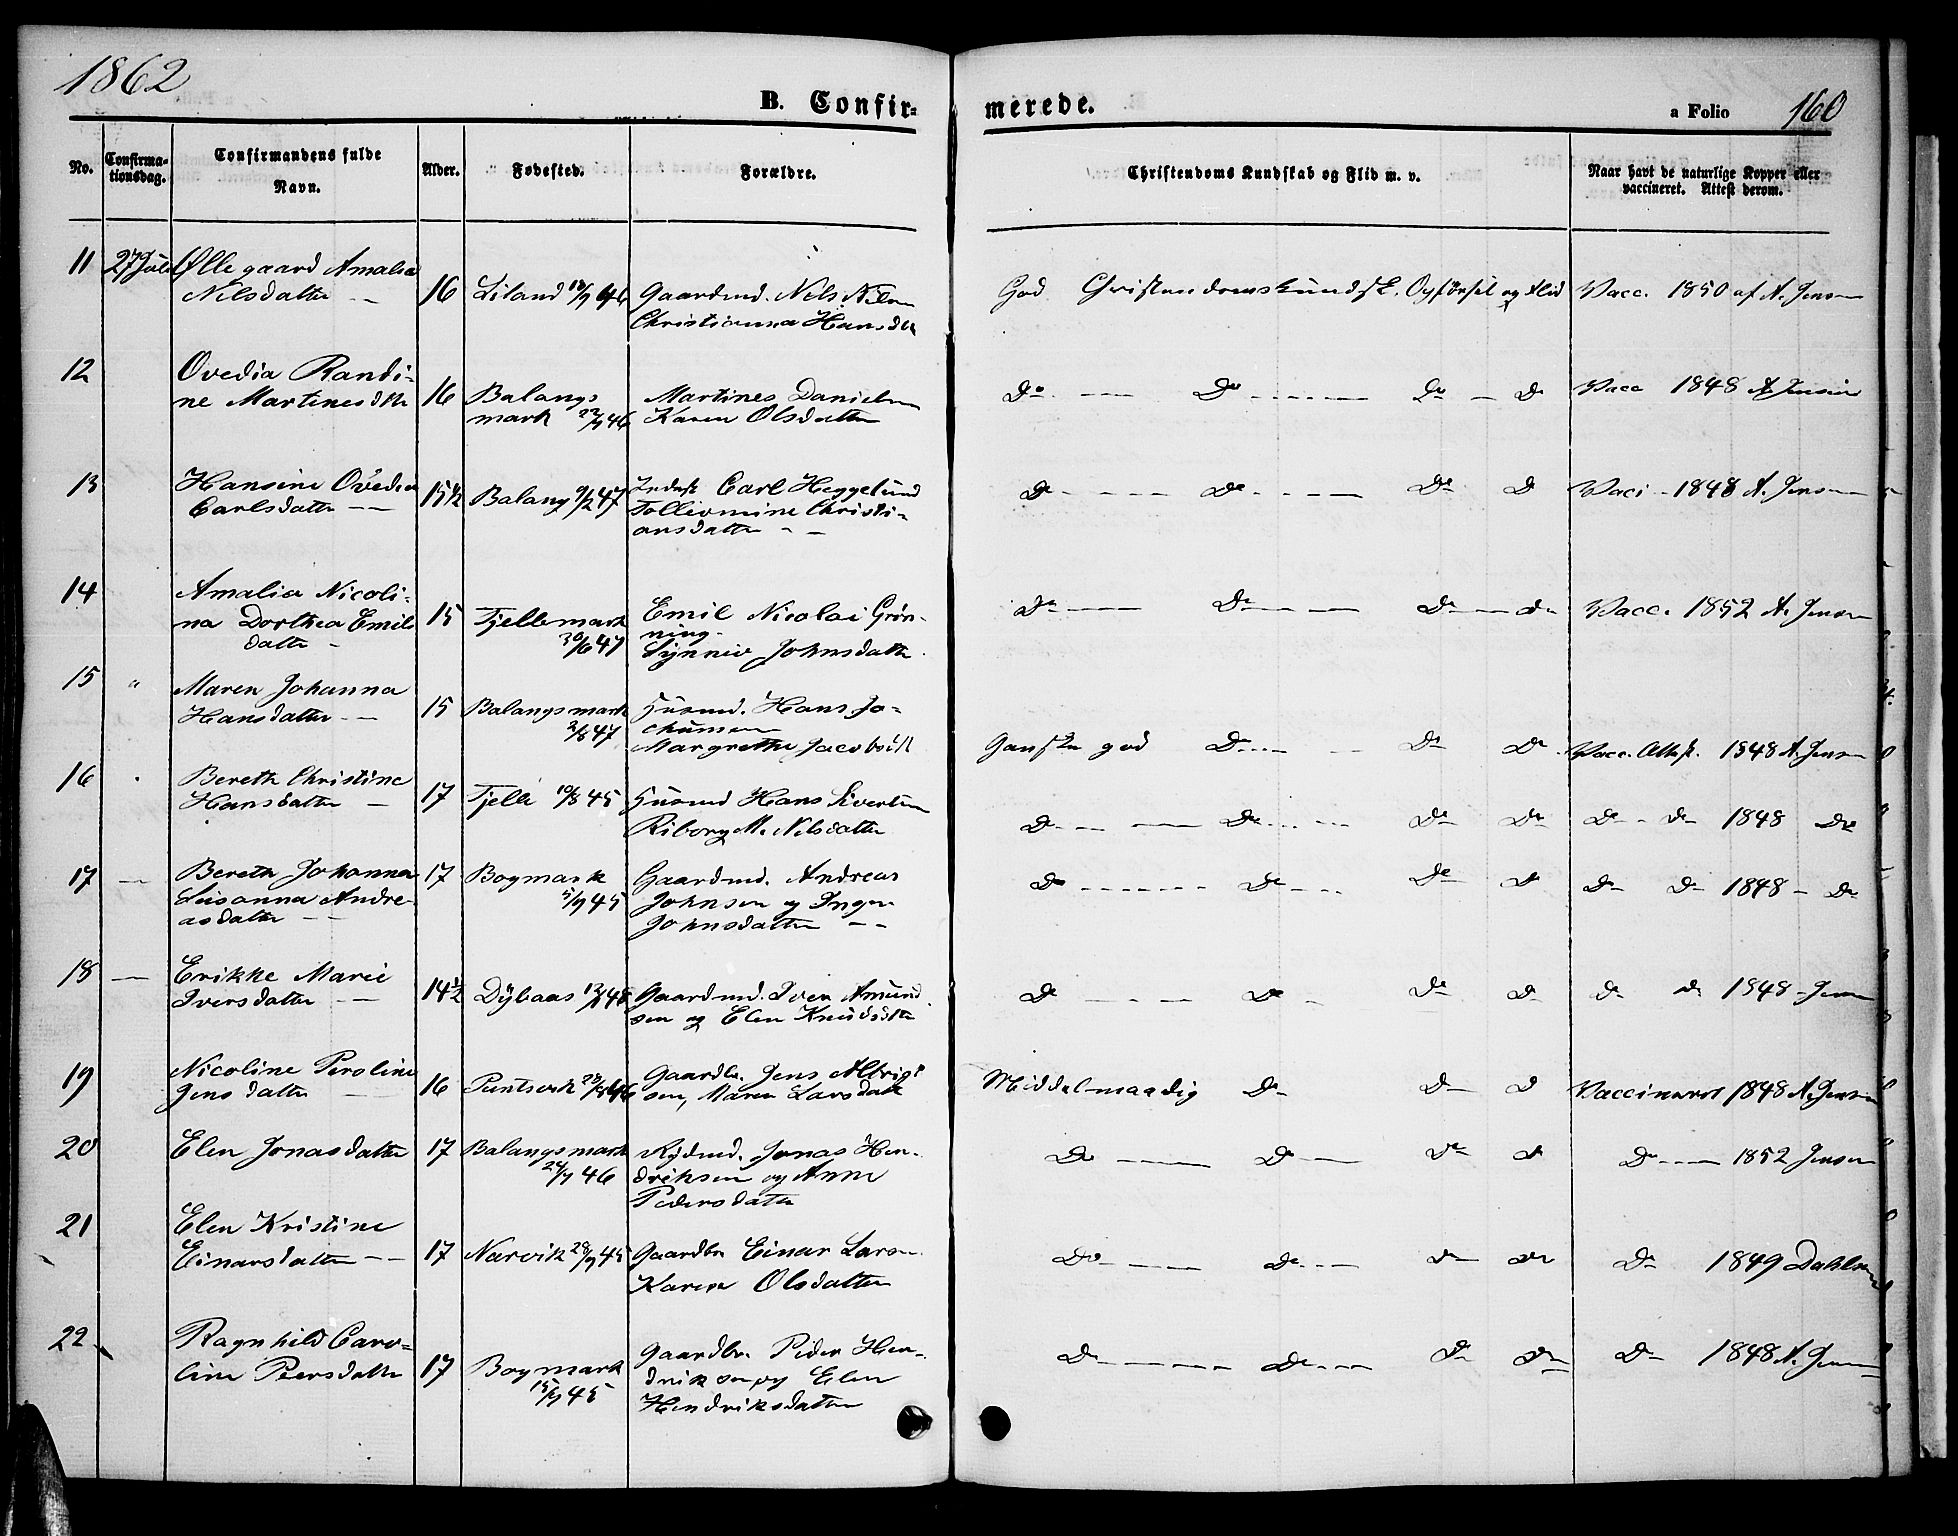 1862
B. Confir-
merede.
a Folio 160
No.
Confirma-
tionsdag.
Confirmandens fulde
Navn.
Alder.
Fødested.
Forældre.
Christendoms Kundskab og Flid m. v.
Naar havt de naturlige Kopper eller
vaccineret. Attest derom.
11 27 Juli Øllegaard Amalia
Nilsdatter — 16 Liland 46 Gaardmd. Nils Nilsen
Christianna Hansdtr
God Christendomskundsk. Opførsel og Flid Vacc. 1850 af A. Jensen
12 Ovedia Randi-
ne Martinesdtr 16 Balangs
mark 46 Martines Danielsen
Karen Olsdatter
Do Do Do D Vacc 1848 A. Jensen
13 Hansine Ovedia
Carlsdatter — 15½ Balang 9/2 47 Indst Carl Heggelund
Christi-
ansdatter —
Do Do Do D Vacc 1848 A. Jensen
14 Amalia Nicoli-
na Dorthea Emils
datter - 15 Tjellemark
30/6 47 Emil Nicolai Grøn-
ning.
Synnev Johnsdatter
Do Do Do Do Vacc. 1852 A. Jensen
15 " Maren Johanna
Hansdatter — 15 Balangsmark
2/8 47 Husmd. Hans Jo-
chumsen
Margrethe Jacobsdt
Ganske god Do Do Do Vacc. Attest. 1848 A. Jensen
16 " Bereth Christine
Hansdatter — 17 Tjelle 10/8 45 Husmd Hans Sivertsen
Riborg M. Nilsdatter
Do Do Do Do Do Do 1848 Do
17 — Bereth Johanna
Susanna Andre-
asdatter — 17 Bogmark
5/9 45 Gaardmd. Andreas
Johnsen og Inger
Johnsdatter —
Do Do Do D Do Do 1848 - Do
18 — Erikke Marie
Iversdatter — 14½ Dybaas 48 Gaardmd. Iver Amund
sen og Elen Knudsdtr
Do Do Do Do Do Do 1848 - Jensen
19 Nicoline Peroline
Jensdatter — 16 46 Gaardbr. Jens Albrigt
sen, Maren Larsdatt
Middelmaadig Do Do D Vaccineret 1848 A. Jensen
20 Elen Jonasdatter 17 Balangsmark
46 Rydmd. Jonas Hen-
driksen og Anne
Pedersdatter
Do Do Do D Do 1852 Jensen
21 Elen Kristine
Einarsdatter — 17 Narvik 28/9 45 Gaardbr Einar Larsen
Karen Olsdatter
Do Do Do Do Do 1849 Dahlsen
22 Ragnhild Caro-
line Peersdatter 17 Bogmark
45 Gaardbr. Peder Hen-
driksen og Elen
Hendriksdatter
Do Do Do Do Do 1848 A. Jensen